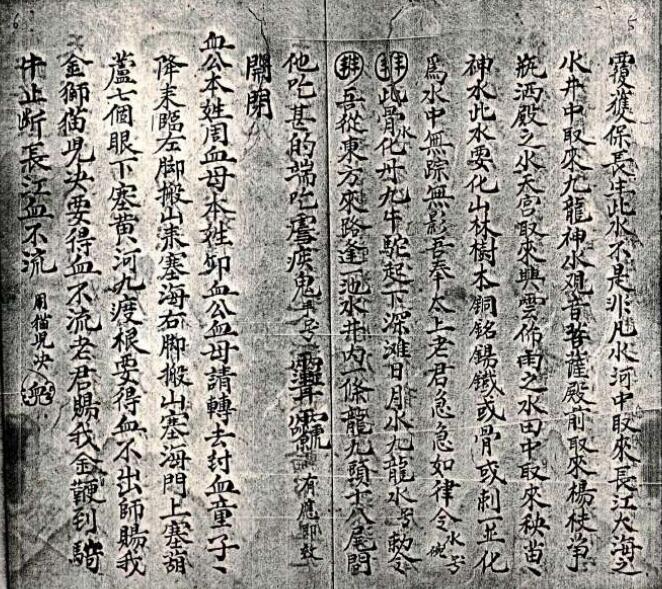 5
靈獲保長生此水不是非凡水河中取來長江大海之
水井中取來九龍神水观音菩薩殿前取來楊枝爭
瓶洒殿之水天宮取來興雲佈雨之水田中取來秧苗
神水此水要化山林樹木銅銘錫鐵或骨或刺一並化
為水中無踪無影吾奉太上老君急急如律令水字碗
此骨化丹水九牛駝起下深滩日月水九龍水 勅令
吾從東方來路逢一池水井内一條龍九頭十八尾問
他吃甚的端吃虐疾鬼 號 有應即效
開閉
血公本姓周血母本姓卯血公血母請轉去封血童子
降来臨左脚搬山来塞海右脚搬山塞海門上塞葫
蘆七個眼下塞黄河九渡根要得血不出師賜我
金獅猫児决要得血不流老君賜我金鞭到騎
牛止断長江血不流 用猫児决
6